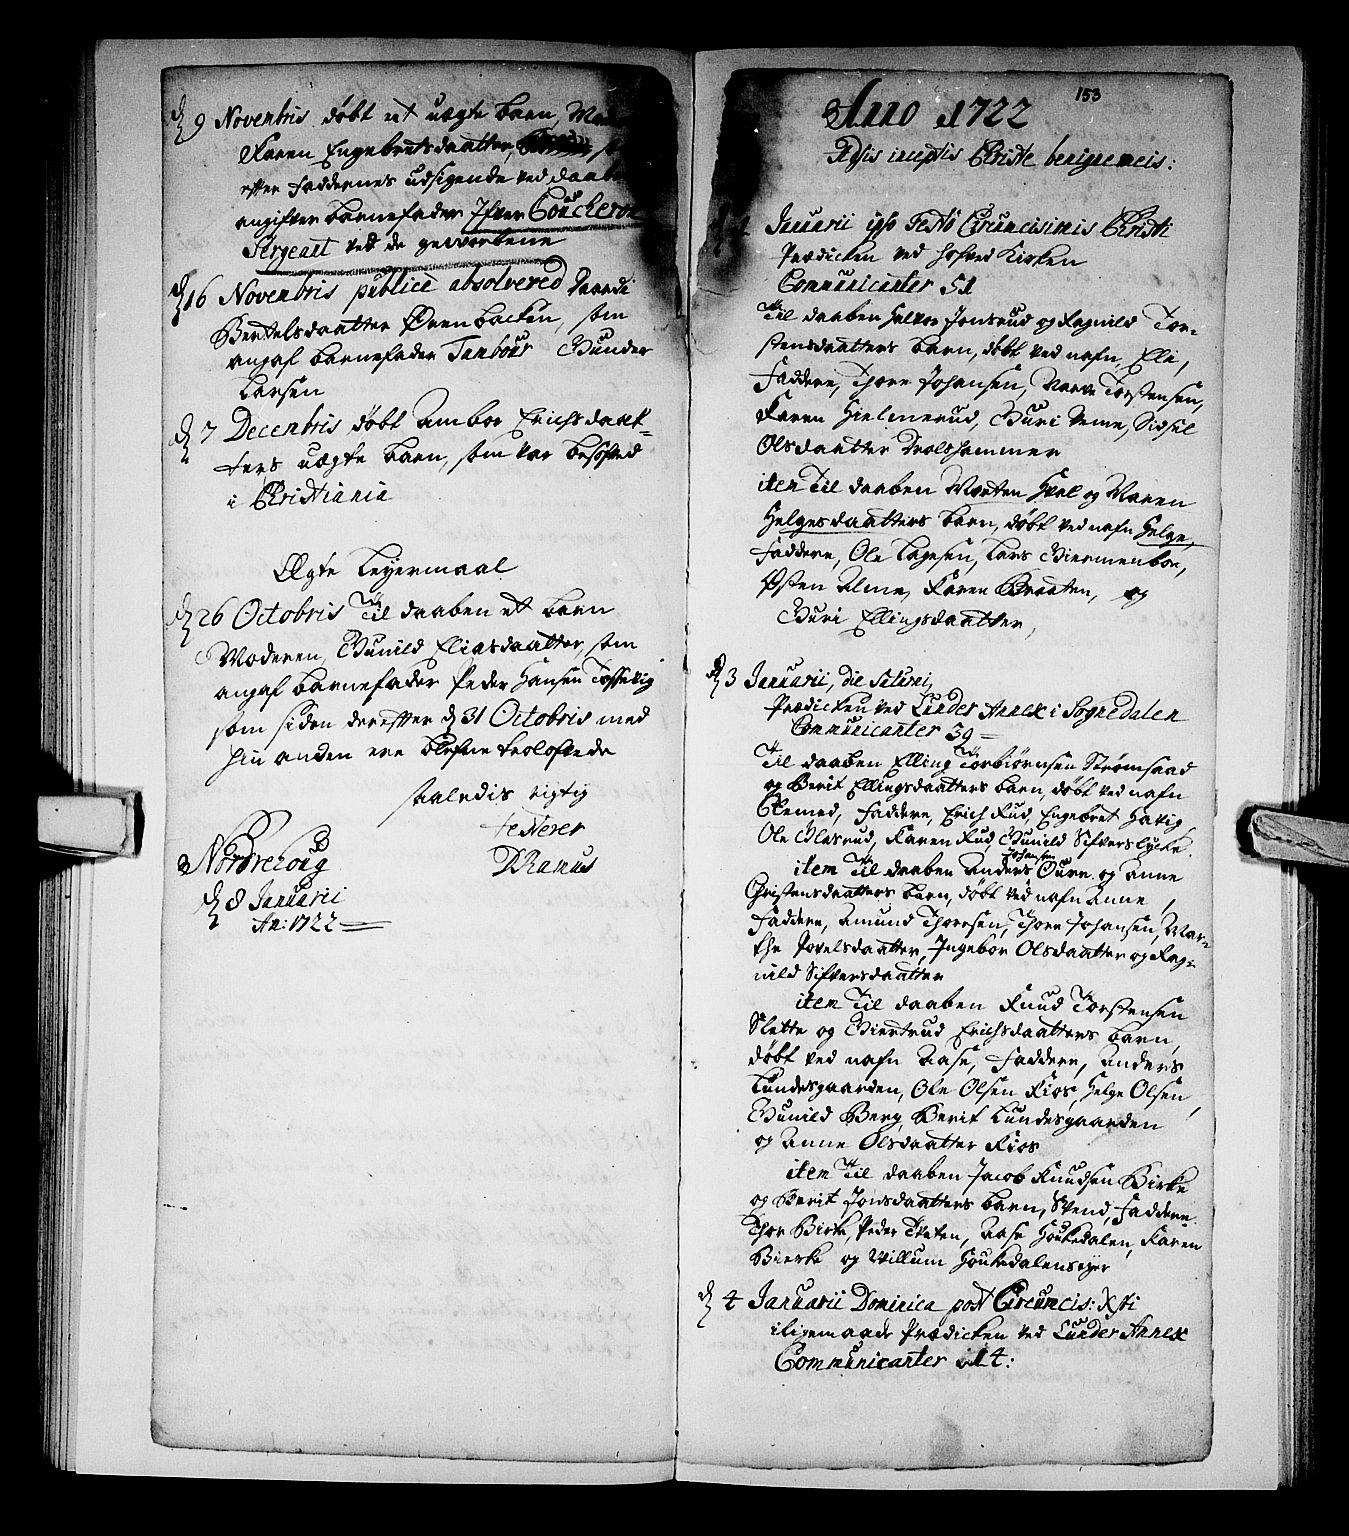 9 Novembris døbt et uægte barn, Mod
Karen Engebretsdaatter,
efter faddernes udsigende ved daaben
angifver barnefader Ifver Coucheron
Sergeant ved de gevorbene
16 Novembris publicè absolvered
Bertelsdaatter Ørenbachen, som
angaf barnefader Tambour Gunder
Larsen
7 Decembris døbt Ambor Erichsdaat=
ters uægte barn, som var besofved
i Christiania
Ægte Leyermaal
26 Octobris Til daaben et barn
Moderen, Gunild Eliasdaatter, som
angaf barnefader Peder Hansen
som siden derefter d 31 Octobris med
hin anden ere blefne trolofvede
saaledis rigtig
testerer
Nordrehoug
DRamus
d 8 Januarii
An: 1722
153
Anno 1722
Januarii ipso Festo Circumcisionis Christi
Prædicken ved Hofved Kirken
Communicanter 51
Til daaben Halvor Jonsrud og Ragnild Tor=
stensdaatters barn, døbt ved nafn, Eli,
Faddere, Thore Johansen, Narve Torstensen,
Karen Hielmerud, Guri Veme, Sidsel
Olsdaatter Trolshammer
item Til daaben Morten Hval og Maren
Helgesdaatters barn, døbt ved nafn Helge,
Faddere, Ole Lagesen, Lars Giermenboe,
Østen Alme, Karen Braaten, og
Guri Ellingsdaatter,
3 Januarii, die Saturni,
Prædicken ved Lunder Annex i Sognedalen
Communicanter 39
Til daaben Elling Torbiørnsen Strømsaad
og Berit Ellingsdaatters barn, døbt ved nafn
Clemed, Faddere, Erich Rud, Engebret Havig,
Ole Olasrud, Karen Rud, Gunild Sifverslycke.
Johansen
item Til daaben Anders Oure og Anne
Christensdaatters barn, døbt ved nafn Anne,
Faddere, Amund Thoresen, Thore Johansen, Mar=
the Povelsdaatter, Ingebor Olsdaatter og Rag=
nild Sifversdaatter
item Til daaben Knud Torstensen
Slette og Giertrud Erichsdaatters barn,
døbt ved nafn Aase, Faddere, Anders
Lundesgaarden, Ole Olsen Rios, Helge Olsen,
Gunild Berg, Berit Lundesgaarden
og Anne Olsdaatter Rios
item Til daaben Jacob Knudsen Birke
og Berit Jonsdaatters barn, Svend, Faddere
Thor Birke, Peder Tveten, Aase Houkedalen, Karen
Bierke og Villum Houkedalenseyer
4 Januarii Dominica post Circumcis: Xsti
iligemaade Prædicken ved Lunder Annex
Communicanter 114: